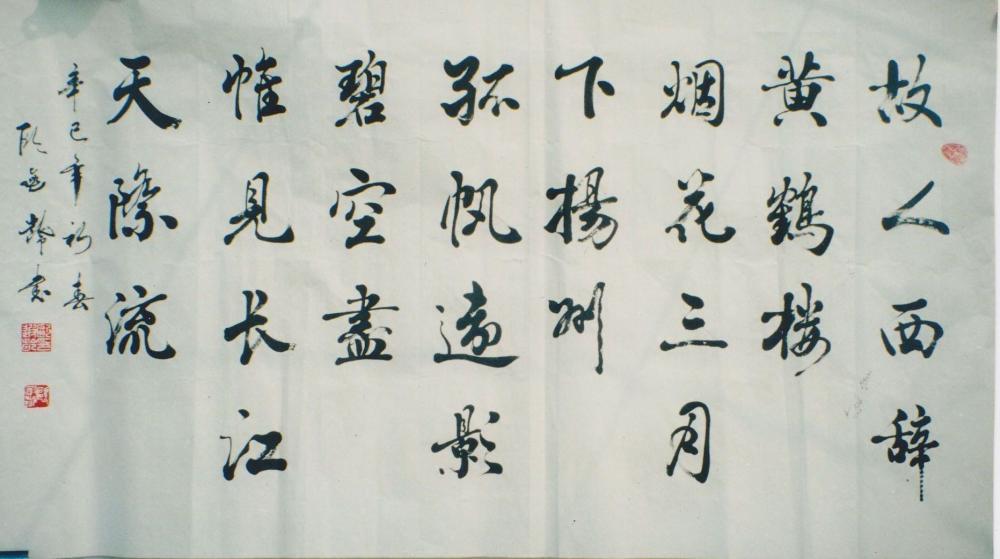 故人西辞
黄鹤楼
烟花三月
下揚州
孤帆遠影
碧空盡
惟見长江
天際流
辛巳年初春